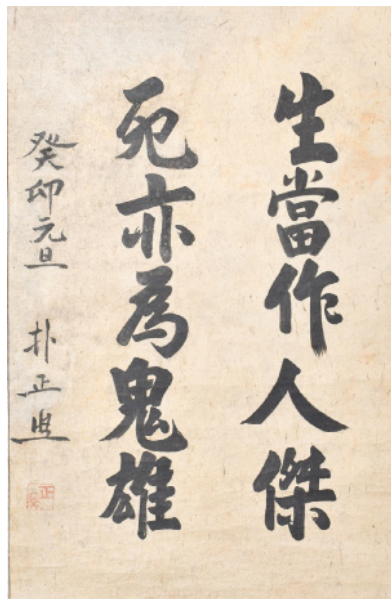 生當作人傑
死亦為鬼雄
癸卯元旦 朴正熙